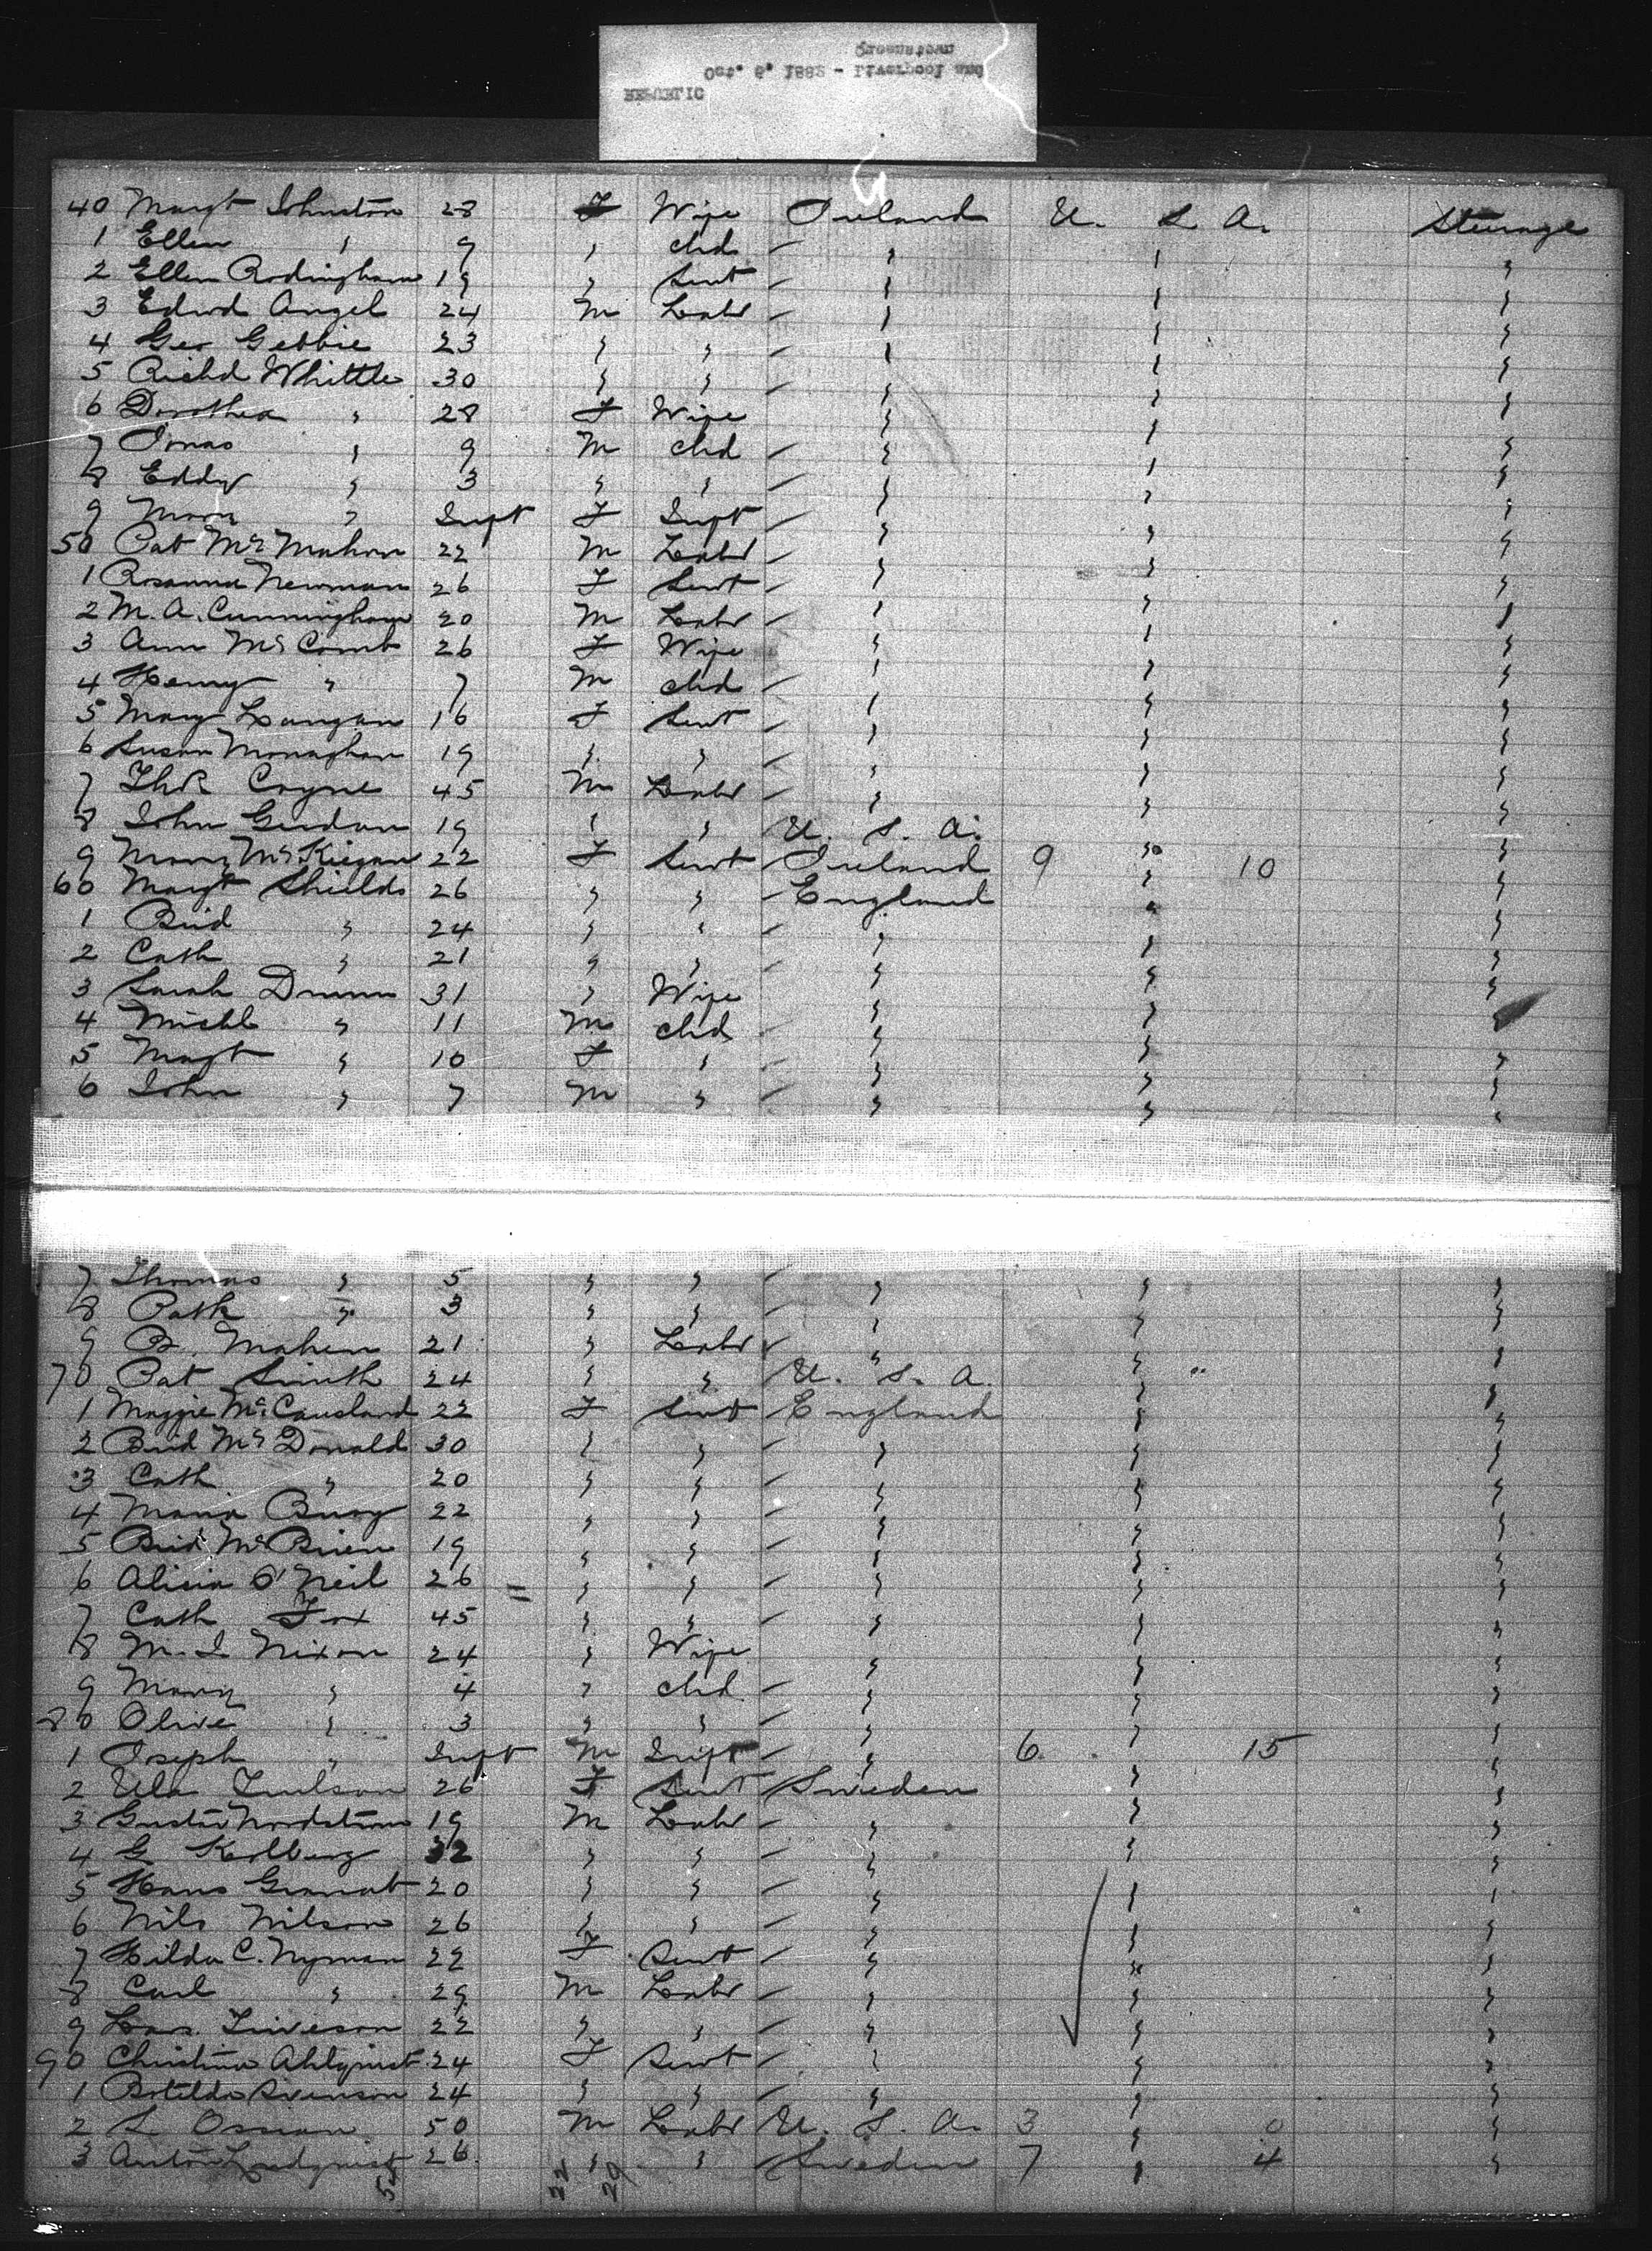 REPUBLIC
Oct. 6. 1892 - Liverpool and
Queenstown
40 Margt Johnston 28 F Wife Ireland U. S. A. Steerage
1 Ellen " 9 " chd " " "
2 Ellen 19 " Servt " " "
3 Edwd Angel 24 M Labr " " "
4 Geo Gebbie 23 " " " " "
5 Richd Whittle 30 " " " " "
6 Dorothea " 28 F Wife " " "
7 Jonas " 9 M chd " " "
8 Eddy " 3 " " " " "
9 Mary " Inft F Inft " " "
50 Pat McMahon 22 M Labr " " "
1 Rosanna Newman 26 F Servt " " "
2 M. A. Cunningham 20 M Labr " " "
3 Ann McComb 26 F Wife " " "
4 Henry " 7 M chd " " "
5 Mary Langan 16 F Servt " " "
6 Susan Monaghan 19 " " " " "
7 Coyne 45 M Labr " " "
8 John 19 " " U. S. A. " "
9 Mary McKiegan 22 F Servt Ireland 9 " 10 "
60 Margt Shields 26 " " England " "
1 Brid " 24 " " " " "
2 Cath " 21 " " " " "
3 Sarah Drumm 31 " Wife " " "
4 Michl " 11 M chd " " "
5 Magt " 10 F " " " "
6 John " 7 M " " " "
7 Thomas " 5 " " " " "
8 Patk " 3 " " " " "
9 B. Mahen 21 " Labr " " "
70 Pat Smith 24 " " U. S. A. " "
1 Maggie McCausland 22 F Servt England " "
2 Brid McDonald 30 " " " " "
3 Cath " 20 " " " " "
4 Maria 22 " " " " "
5 Brid McBrien 19 " " " " "
6 Alicia O'Neil 26 = " " " " "
7 Cath Fox 45 " " " " "
8 M. J. Nixon 24 " Wife " " "
9 Mary " 4 " chd " " "
80 Olive " 3 " " " " "
1 Joseph " Inft M Inft " 6 " 15 "
2 26 F Servt Sweden " "
3 Gustav Nordstrom 19 M Labr " " "
4 G 32 " " " " "
5 Hans Granat 20 " " " " "
6 Nils Nilson 26 " " " " "
7 Hilda C. Nyman 22 F Servt " " "
8 Carl " 29 M Labr " " "
9 Lars 22 " " " " "
90 Christina Ahlquist 24 F Servt " " "
1 Botilda Svenson 24 " " " " "
2 L Ossian 50 M Labr U. S. A. 3 " 0 "
3 Anton Lindquist 26 " " Sweden 7 " 4 "
22 29